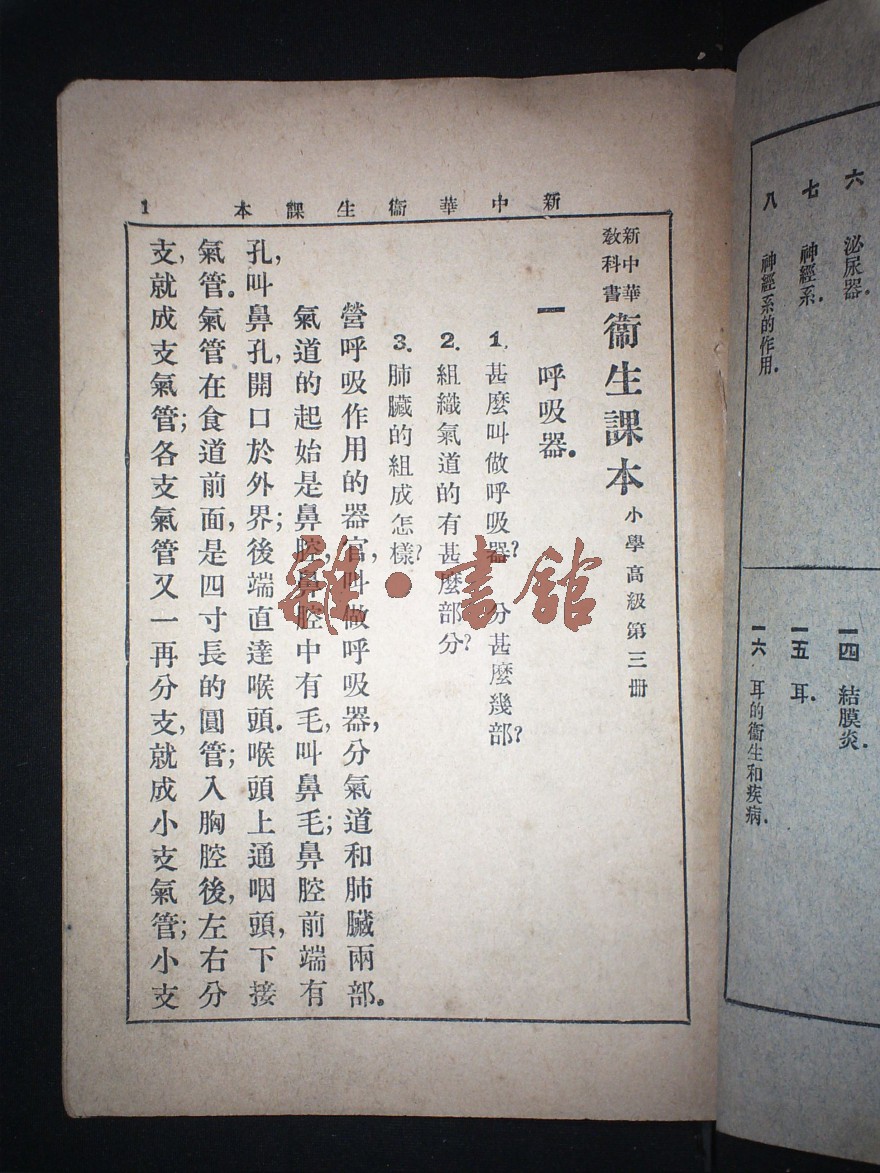 六 泌尿器.
七 神經系.
八 神經系的作用.
一四 結膜炎.
一五 耳.
一六 耳的衞生和疾病.
新中華衞生課本 1
新中華
教科書
衞生課本 小學高級第三册
一 呼吸器.
1. 甚麼叫做呼吸器? 分甚麼幾部?
2. 組織氣道的有甚麼部分?
3. 肺臟的組成怎樣?
營呼吸作用的器官,叫做呼吸器,分氣道和肺臟兩部.
氣道的起始是鼻腔,鼻腔中有毛,叫鼻毛;鼻腔前端有
孔,叫鼻孔,開口於外界;後端直達喉頭.喉頭上通咽頭,下接
氣管.氣管在食道前面,是四寸長的圓管;入胸腔後,左右分
支,就成支氣管;各支氣管又一再分支,就成小支氣管;小支
雜·書館